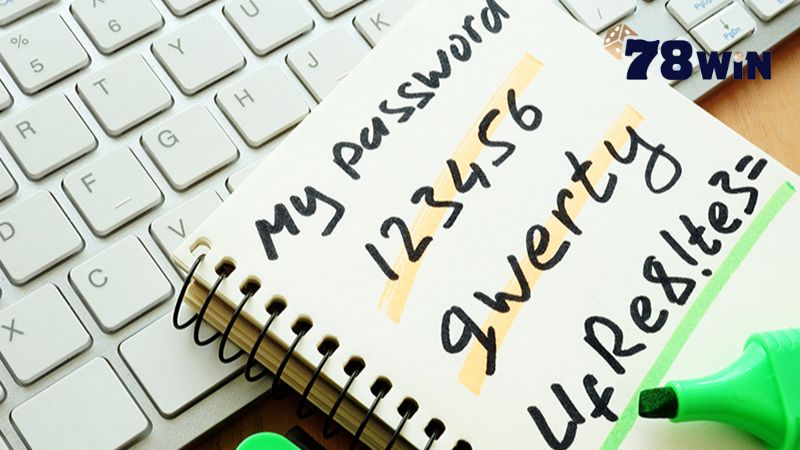 78WIN
My password
123456
qwerty
UfRe8!te3=
%
5
T
Y
U
R
F
G
H
J
D
C
V
X
PgUp
PgDn